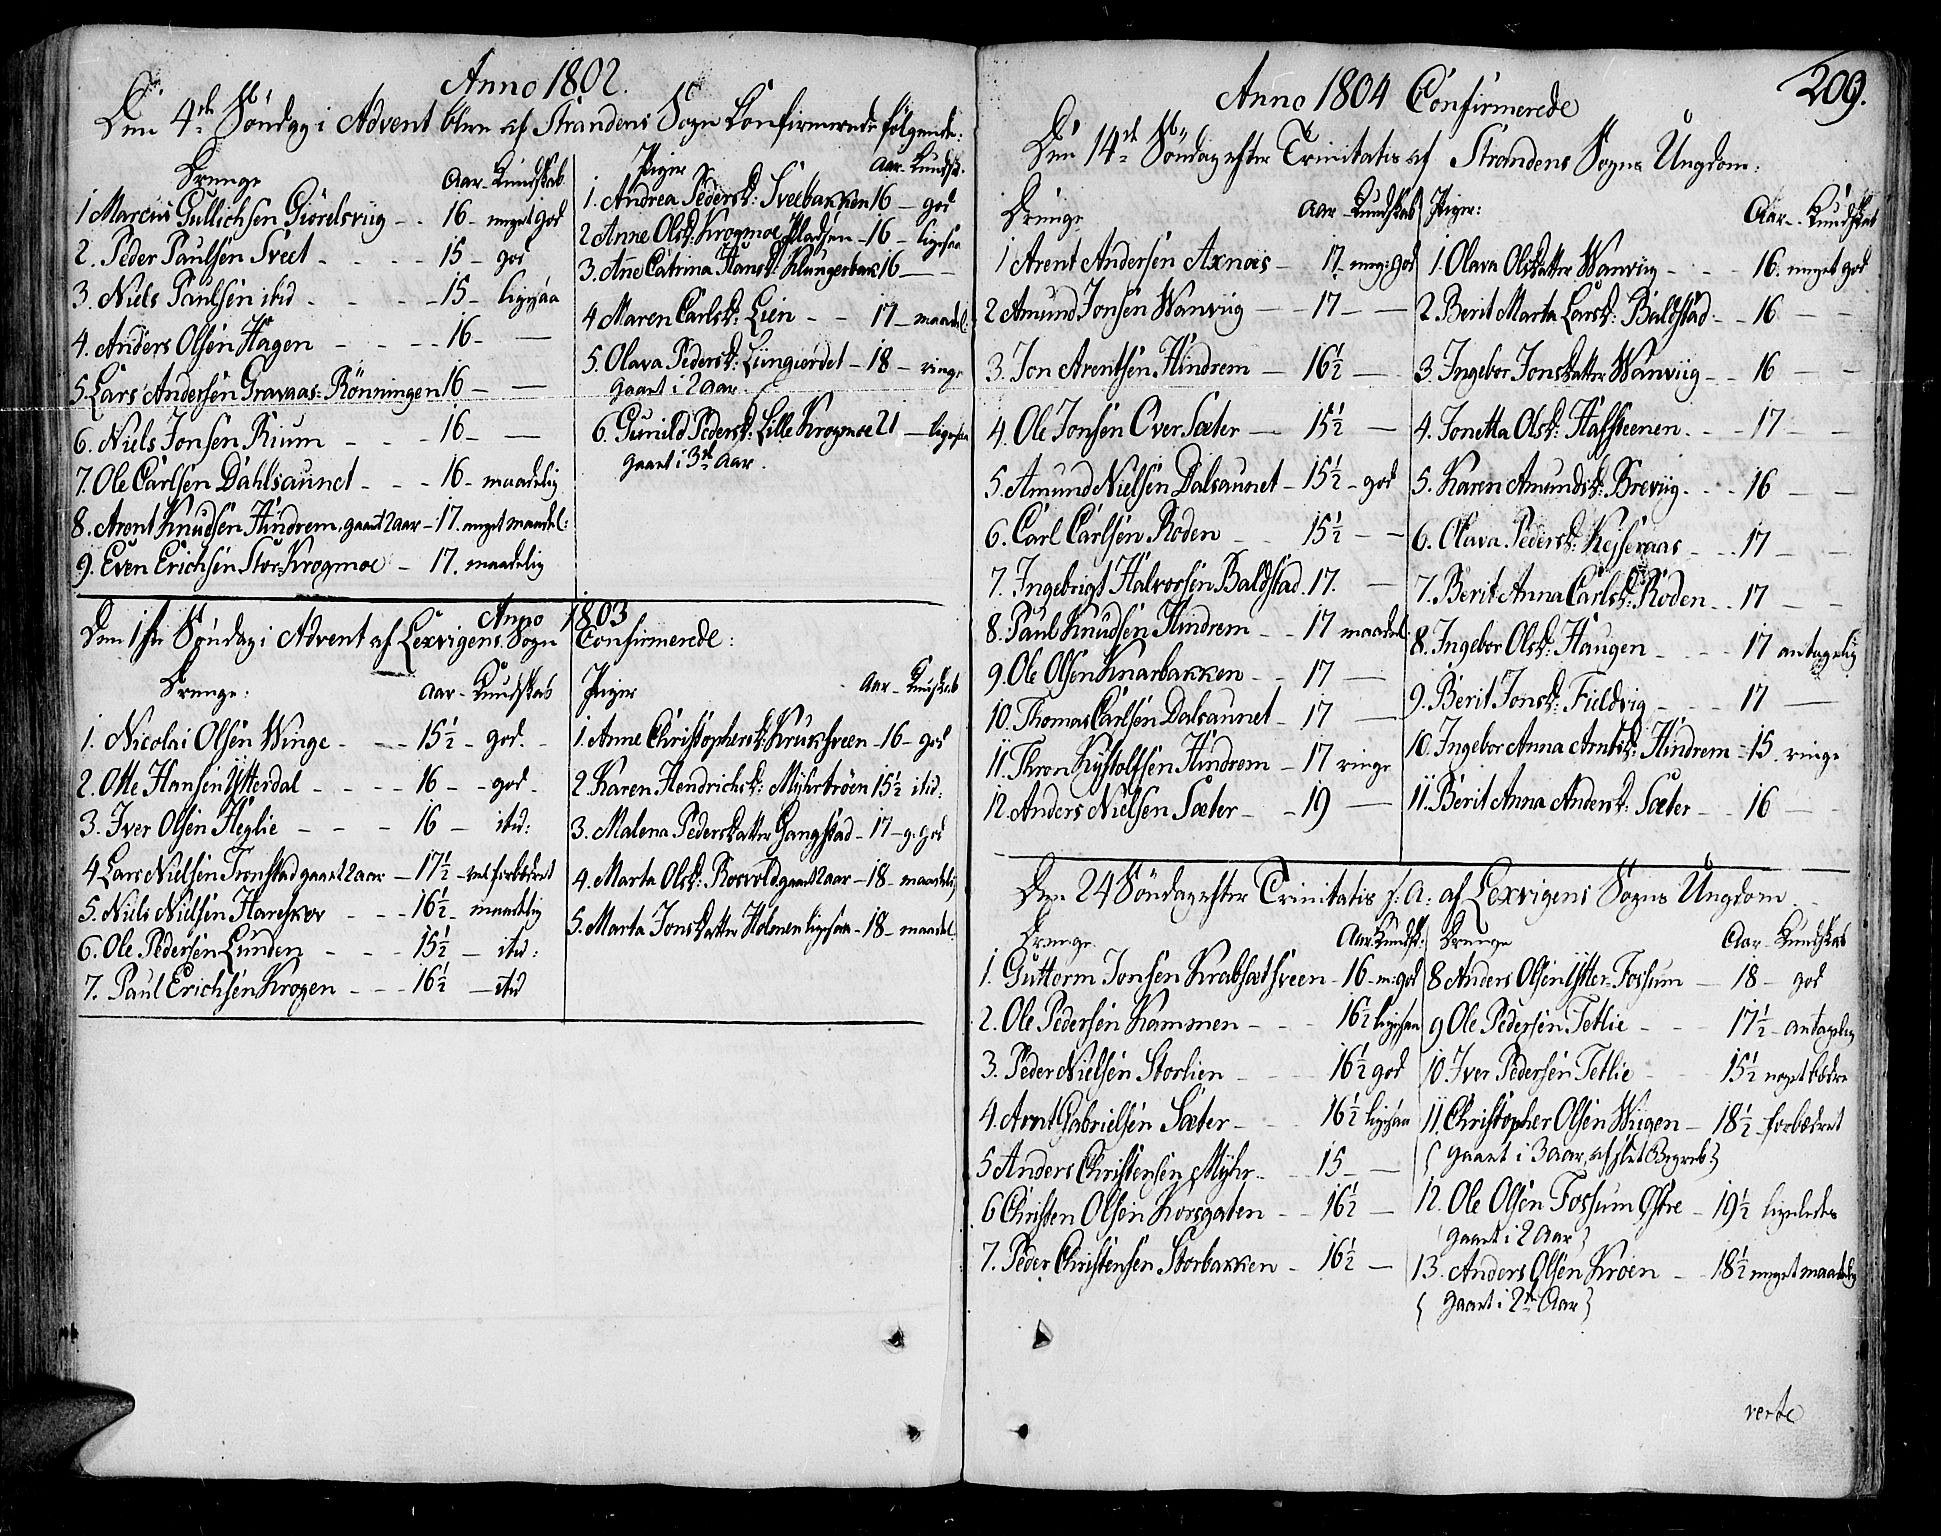 Anno 1802.
Den 4de Söndag i Advent bleve af Strandens Sogn Confirmerede følgende:
Drenge Aar - Kundskab
1 Marcus Gullichsen Giörelsviig - - 16 - meget god
2. Peder Paulsen Sveet - - - - 15 - god
3. Niels Paulsen itid - - - - 15 - ligesaa
4. Anders Olsen Hagen - - - - 16 - —
5. Lars Andersen Gravaas-Rönningen 16 - —
6. Niels Jonsen Rium - - - 16 - —
7. Ole Carlsen Dahlsaunet - - - 16 - maadelig
8. Arent Knudsen Hindrem, gaaet 2 aar - 17. meget maadel:
9. Even Erichsen Stor-Krogmoe - 17. maadelig
Piger Aar - Kundsk:
1. Andrea Pedersd: Sveebakken 16 - god
2 Anne Olsd: Krogmoe Pladsen - 16 - ligesaa
3. Añe Catrina Hansd: Klungerbak 16 - —
4 Maren Carlsd: Lien - - 17 - maadel:
5. Olava Pedersd: Lüngierdet - 18 - ringe
gaaet i 2 Aar.
6. Gunild Pedersd: Lille Krogmoe 21 - ligesaa
gaaet i 3de Aar.
Anno 1803
Den 1ste Söndag i Advent af Lexvigens Sogn Confirmerede:
Drenge: Aar - Kundskab
1. Nicolai Olsen Winge - - - 15½ - god.
2. Otte Hansen Ytterdal - - - - 16 - - god -
3. Iver Olsen Heglie - - - 16 - itid:
4 Lars Nielsen Tronstad gaaet 2 aar - 17½ - vel forbedret
5. Niels Nielsen Hareskov - - - 16½ - maadelig
6. Ole Pedersen Lunden - - - 15½ - itid:
7. Paul Erichsen Krogen - - - 16½ - itid
Piger Aar - Kundskab
1. Anne Christophersd: Kruksveen - 16 - god
2. Karen Hendrichsd: Myhrbröen 15½ itid:
3. Malena Pedersdatter Gangstad - 17 - g. god
4. Marta Olsd: Rosvold gaaet 2 aar - 18 - maadelig
5. Marta Jonsdatter Holmen ligesaa - 18 - maadel:
209.
Anno 1804 Confirmerede
Den 14de Söndag efter Trinitatis af Strandens Sogns Ungdom:
Drenge Aar - Kundskab
1 Arent Andersen Axnæs - 17. meg: god
2 Amund Jonsen Wanviig — - 17 - —
3. Jon Arentsen Hindrem — 16½ —
4. Ole Jonsen Over Sæter — 15½ —
5. Amund Nielsen Dalsaunet - 15½ - god
6. Carl Carlsen Roden - - 15½ - —
7. Ingebrigt Halvorsen Baldstad 17. —
8. Paul Knudsen Hindrem - - 17 maadel:
9. Ole Olsen Knarbakken - - 17 —
10. Thomas Carlsen Dalsaunet - 17 —
11. Thron Kystolfsen Hindrem - 17 ringe
12. Anders Nielsen Sæter - - 19 —
Piger: Aar - Kundskab
1. Olava Olsdatter Wanviig - - - 16. meget god
2. Berit Marta Larsd: Baldstad - - 16 - —
3. Ingebor Jonsdatter Wanviig - - 16 - —
4. Jonetta Olsd: Hafsteenen. - - 17 - —
5. Karen Amundsd: Breviig - - - 16 - —
6. Olava Pedersd: Kejseraas - - - 17 - —
7. Berit Anna Carlsd: Roden - - 17 - —
8. Ingebor Olsd: Haugen - - - 17 antagelig
9. Berit Jonsd: Fieldvig - - - 17 —
10. Ingebor Anna Arntsd: Hindrem - 15. ringe
11. Berit Anna Andersd: Sæter - - 16 —
Den 24 Söndag efter Trinitatis s: a: af Lexvigens Sogns Ungdom.
Drenge Aar Kundsk:
1. Guttorm Jonsen Krabsætsveen - 16 - m: god
2. Ole Pedersen Kammen - - - 16½ ligesaa
3. Peder Nielsen Storlien - - - 16½ god
4. Arnt Gabrielsen Sæter - - 16½ ligesaa
5 Anders Christensen Myhr - - 15 - —
6 Christen Olsen Korsgaten - - 16½ —
7. Peder Christensen Storbakken - 16½ —
Drenge Aar - Kundskab
8 Anders Olsen Ytter-Fossum - 18 - god
9 Ole Pedersen Tetlie - - - 17½ - antagelig
10. Iver Pedersen Tetlie - - 15½ noget bedre
11. Christopher Olsen Wiigen - 18½ - forbedret
{ gaaet i 3 Aar, af slet Begreb }
12. Ole Olsen Fossum Østre - 19½ ligeledes
{ gaaet i 2 Aar }
13. Anders Olsen Kroen - - 18½ meget maadelig
{ gaaet i 2de Aar }
verte